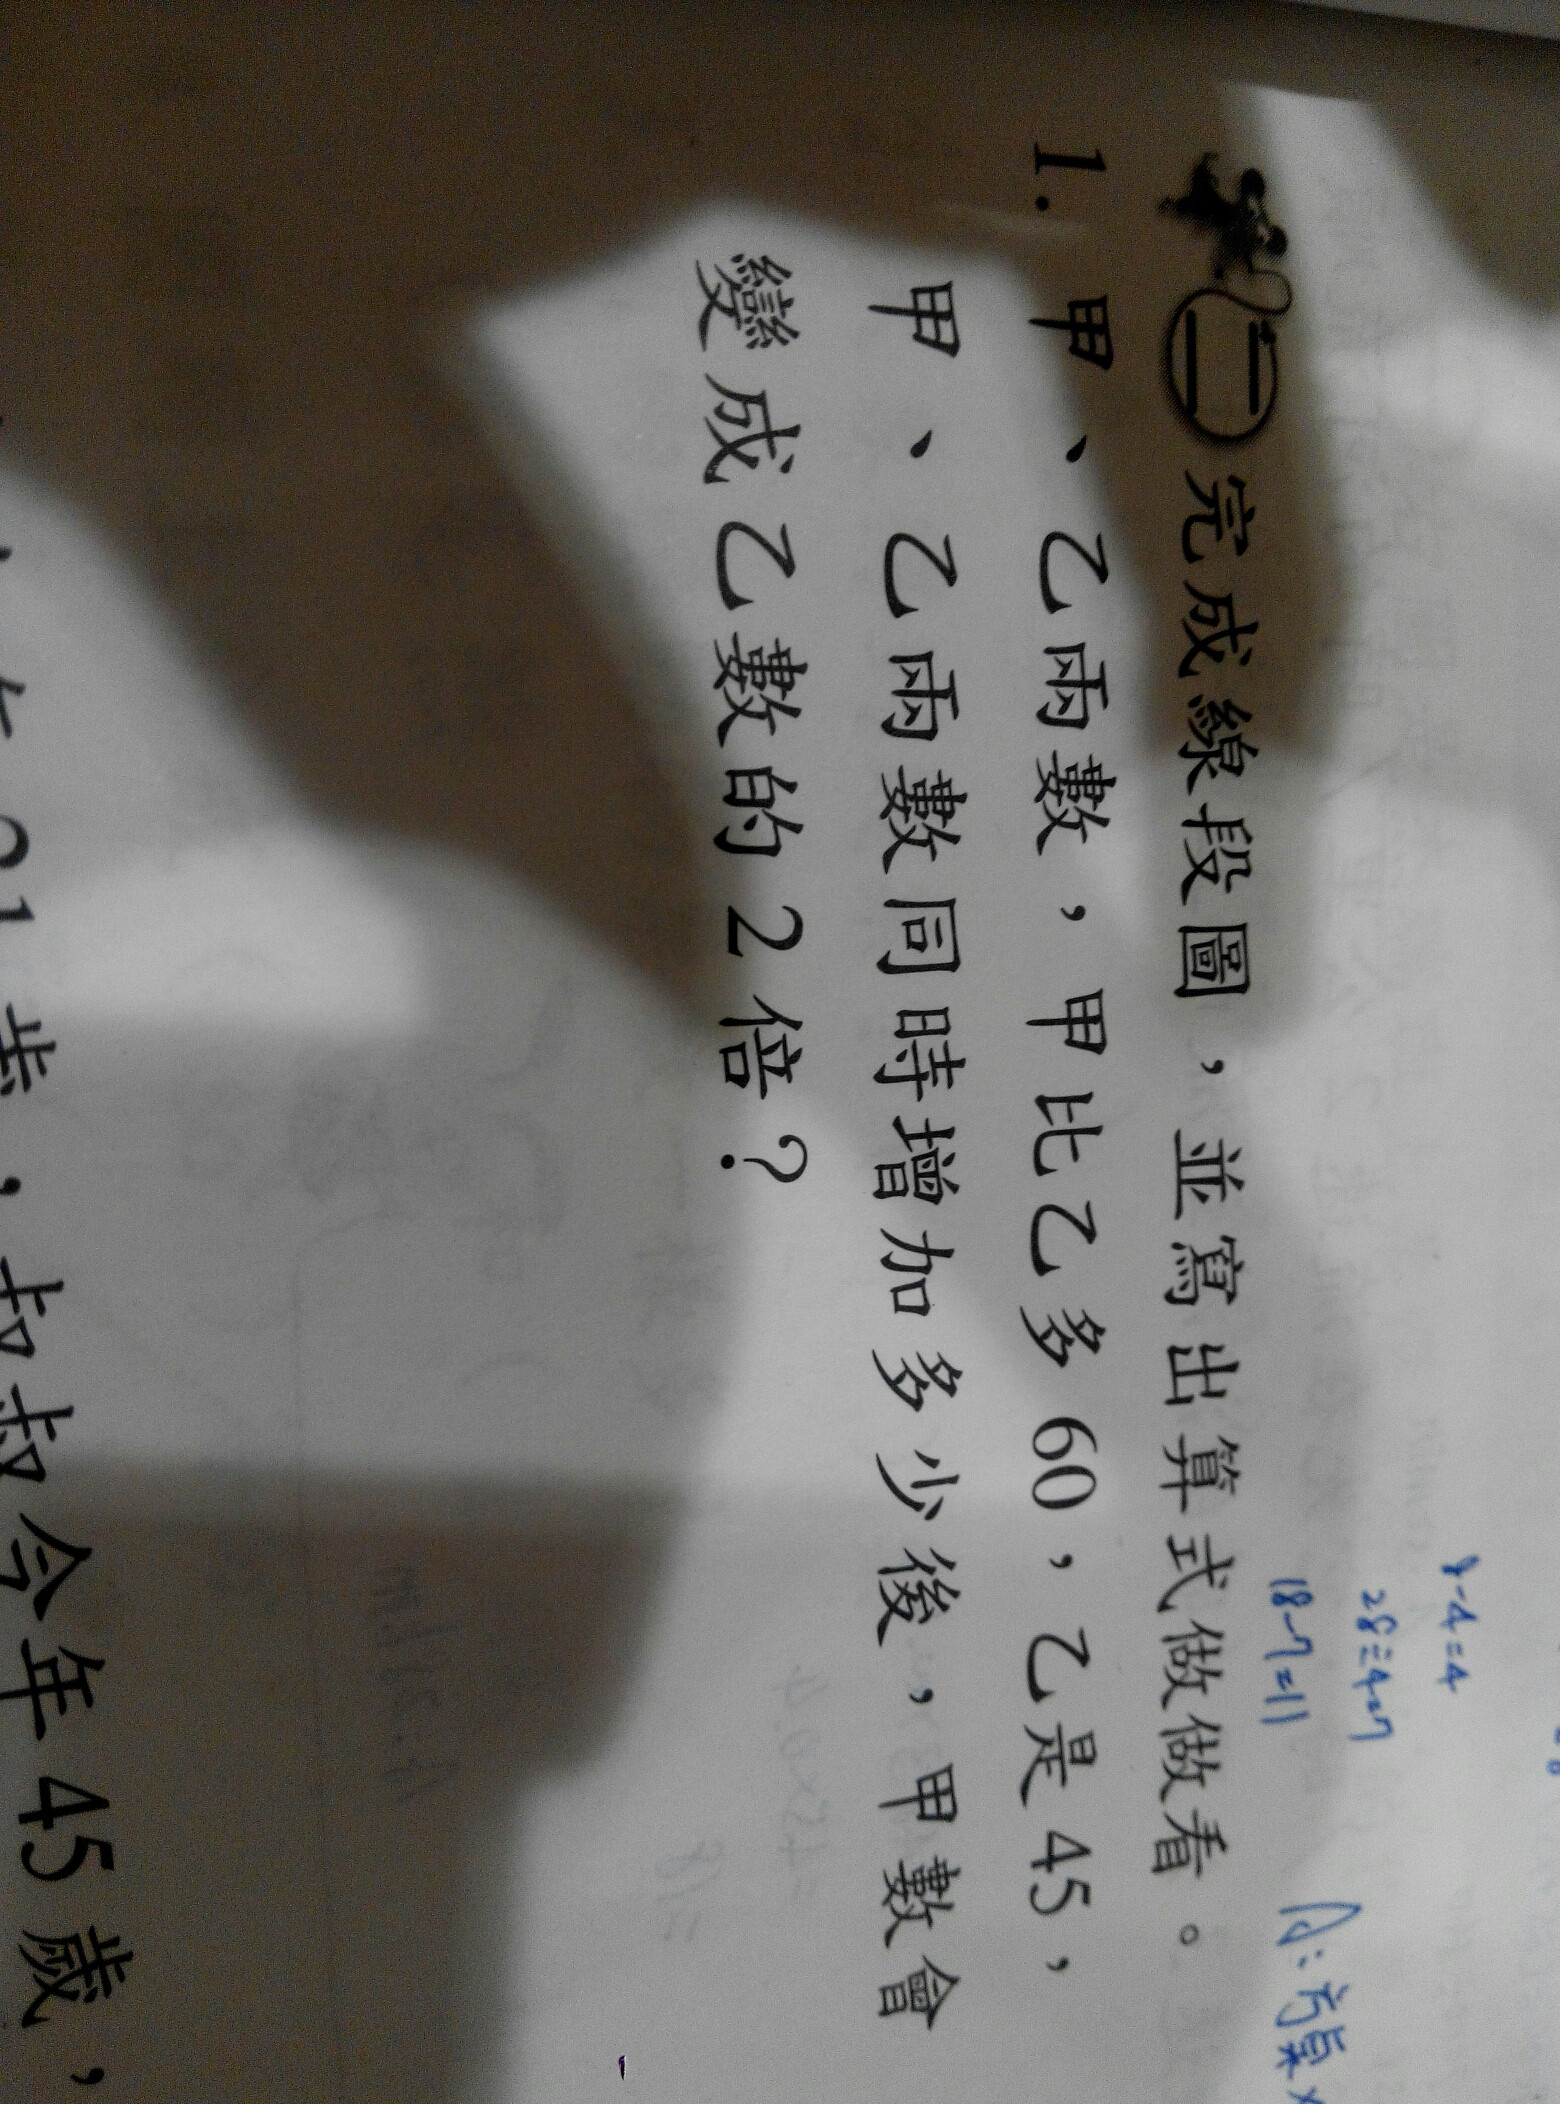 8-4=4
28÷4=7
18-7=11
A:方桌
㊁完成線段圖，並寫出算式做做看。
1. 甲、乙兩數，甲比乙多 60，乙是 45，
甲、乙兩數同時增加多少後，甲數會
變成乙數的 2 倍？
21歲，叔叔今年 45 歲，